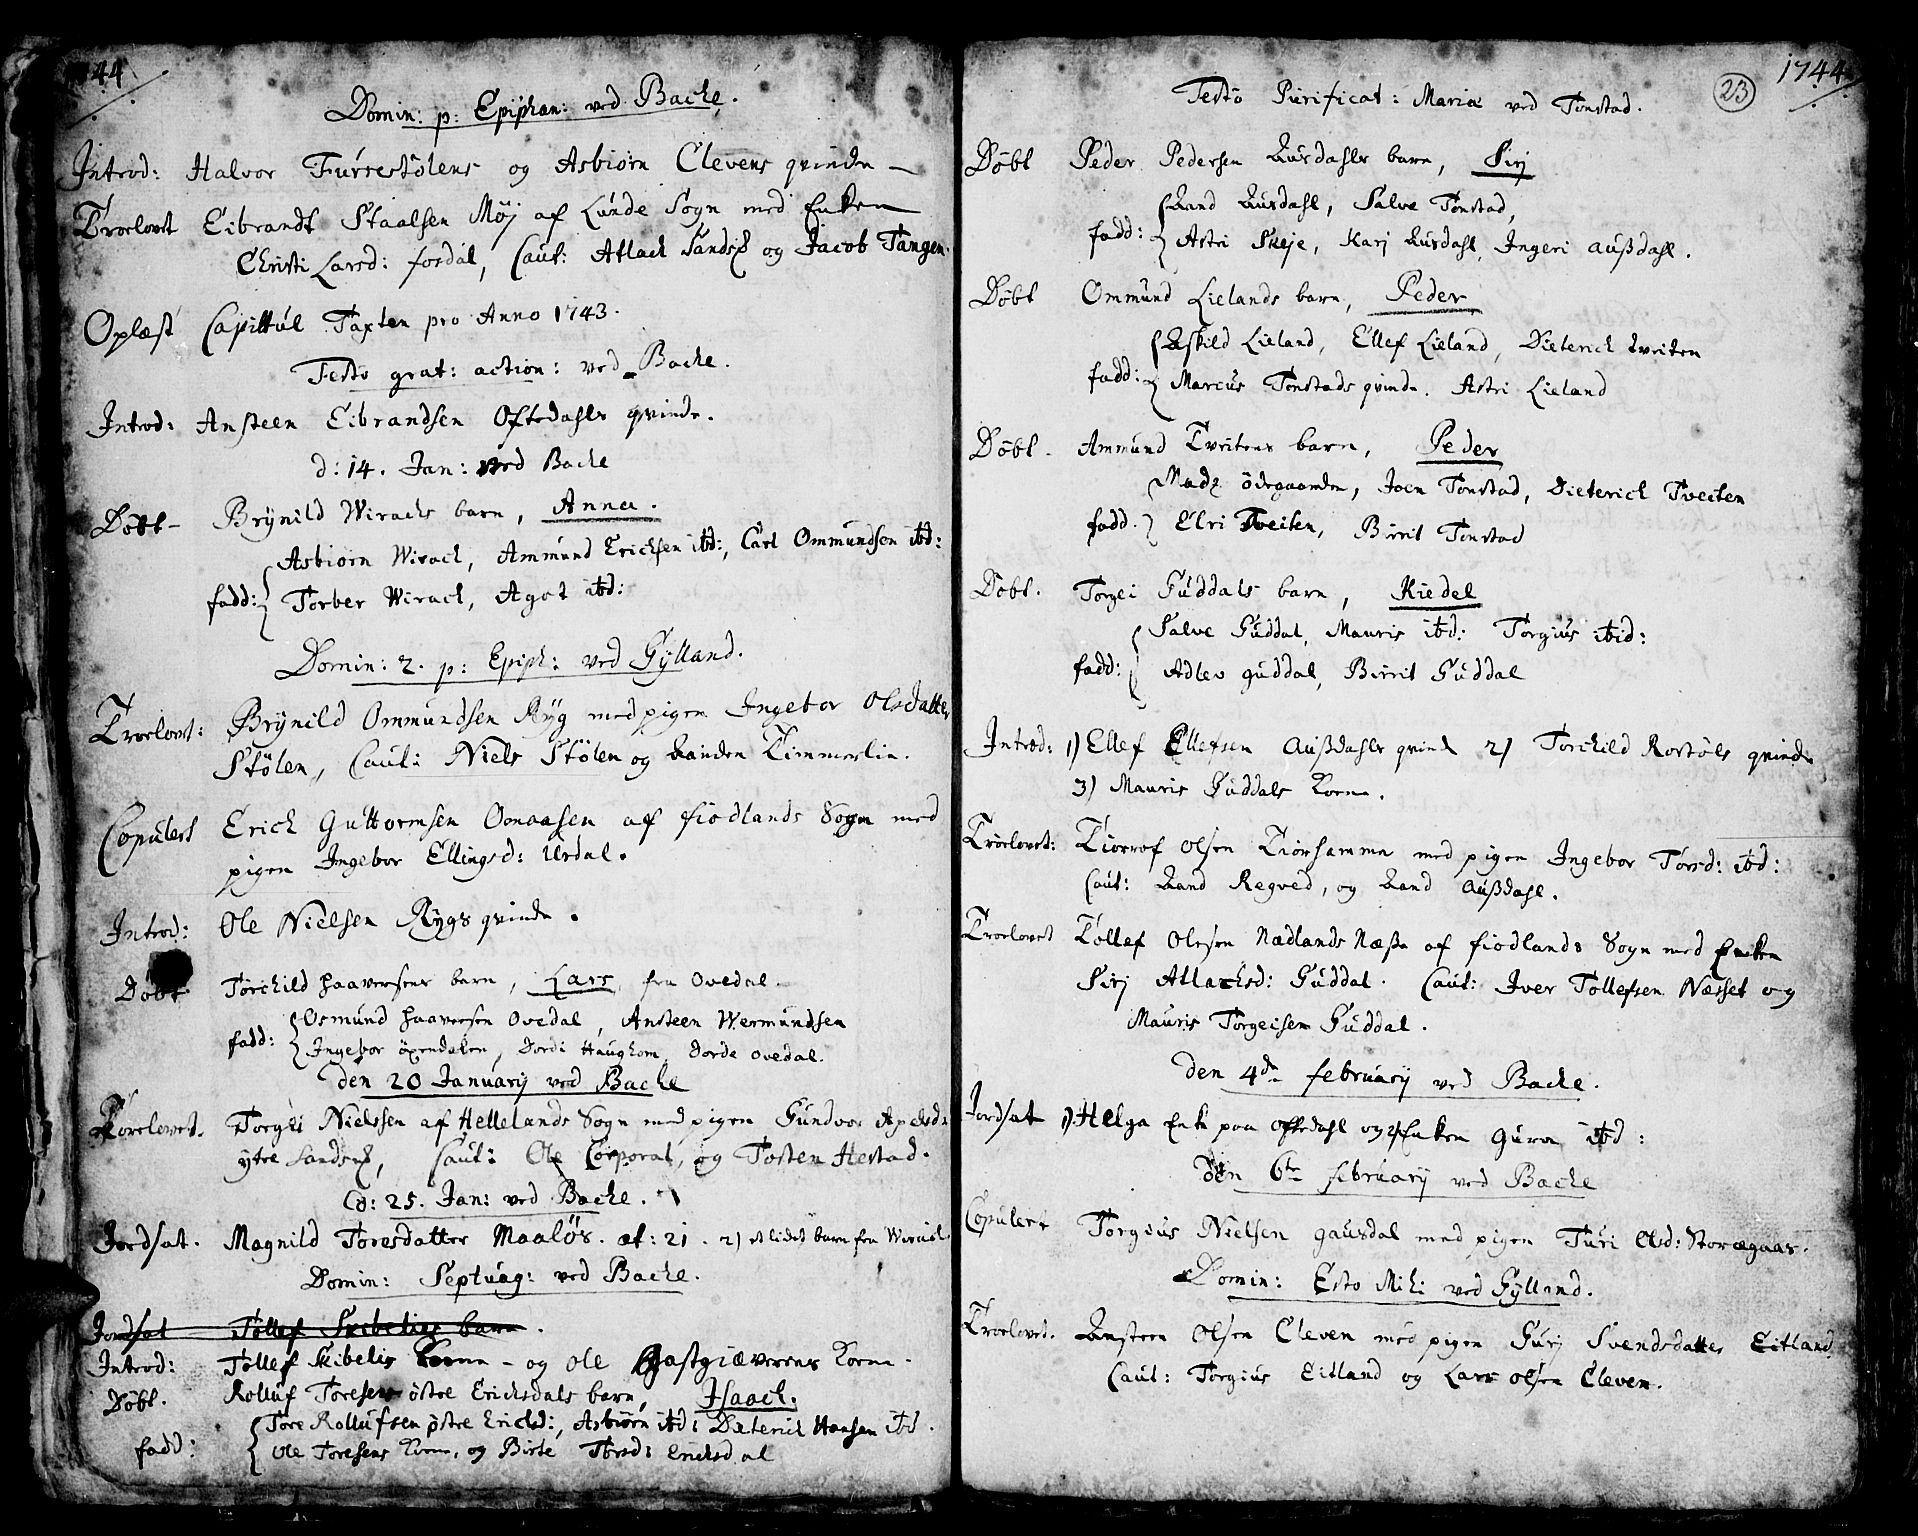 44
Domin: p: Epiphan: ved Bache.
Introd: Halvor Furrestølens og Asbiørn Clevens qvinde —
Troelovet Eibrandt Staalsen Møj af Lunde Sogn med Enken
Christi Larsd: fosdal, Caut: Atlach Sands og Jacob Tangen.
Oplæst Capittul Taxten pro Anno 1743.
Festo grat: action: ved Bache.
Introd: Ansteen Eibrandsen Oftedahls qvinde.
d: 14. Jan: ved Bache
Døbt — Brÿnild Wirachs barn, Anna.
Asbiørn Wirach, Ammund Erichsen ibd:, Carl Ommundsen ibd:
fadd: Torber Wirach, Agot ibd:
Domin: 2. p: Epiph: ved Gÿlland.
Troelovet: Brÿnild Ommundsen Rÿg med pigen Ingebor Olsdatter
Stølen, Caut: Niels Stølen og Randen Timmerlin.
Copulert Erich Guttormsen Omaasen af fiodlands Sogn med
pigen Ingebor Ellingsd: Urdal.
Introd: Ole Nielsen Rÿgs qvinde.
Døbt Torchild haaversens barn, Lars, fra Ovedal.
Osmund haaversen Ovedal, Ansteen Wermundsen
fadd: Ingebor øxendalen, Dordi Haughom, Dorde Ovedal.
den 20 Januarij ved Bache
Troelovet. Torgei Nielssen af Hellelands Sogn med pigen Gundvor Apelsd:
ytre Sands, Caut: Ole Corporal, og Tosten Hestad.
d: 25. Jan: ved Bache.
Jordsat. Magnild Toresdatter Maaløs. æt: 21. 2) et lidet barn fra Wirach
Domin: Septuag: ved Bache.
Jordsat Tollef Skibelies barn.
Introd: Tollef Skibelis Kone — og Ole Gastgiæverens Kone.
Døbt. Rolluf Toresens østre Ericksdals barn, Isaach.
Tore Rollufsen østre Ericksd:, Asbiørn ibd: Dieterich Hansen ibd.
fadd: Ole Toresens Kone, og Birte Toresd: Ericksdal
1744
23
Festo Purificat: Mariæ ved Tonstad.
Døbt Peder Pedersen Lusdahls barn, Sirj
Rand Lusdahl, Salve Tonstad,
fadd: Astri Skeje, Karj Lusdahl, Ingeri Aussdahl.
Døbt Ommund Lielands barn, Peder
Eskild Lieland, Ellef Lieland, Dieterich Tveiten
fadd: Marcus Tonstads qvinde. Astri Lieland
Døbt. Ammund Tveitens barn, Peder
Madz ødegaarden, Joen Tonstad, Dieterich Tveiten
fadd. Elri Tveiten, Birrit Tonstad
Døbt. Torgei Guddals barn, Kiedel
Salve Guddal, Mauris ibd: Torgius ibid:
fadd: Adlev guddal, Birrit Guddal
Introd: 1) Ellef Ellefsen Aussdahls qvind 2) Torchild Rostøls qvinde
3) Mauris Guddals Kone.
Troelovet: Tiorrof Olsen Tiørhamme med pigen Ingebor Torsd: ibd:
Caut: Rand Regved, og Rand Aussdahl.
Troelovet Tollef Olesen Nædlands Næsse af fiodlands Sogn med Enken
Sirj Atlachsd: Guddal. Caut: Iver Tollefsen Næsset og
Mauris Torgeisen Guddal.
den 4de februarij ved Bache.
Jordsat 1) Helga Enke paa Oftedahl og 2) Enken Guron ibd:
den 6te februarij ved Bache
Copulert Torgius Nielsen gausdal med pigen Turi Olsd: Storægaas.
Domin: Esto Mihi ved Gÿlland.
Troelovet. Ansteen Olsen Cleven med pigen Gurj Svendsdatter Eitland
Caut: Torgius Eitland og Lars Olsen Cleven.